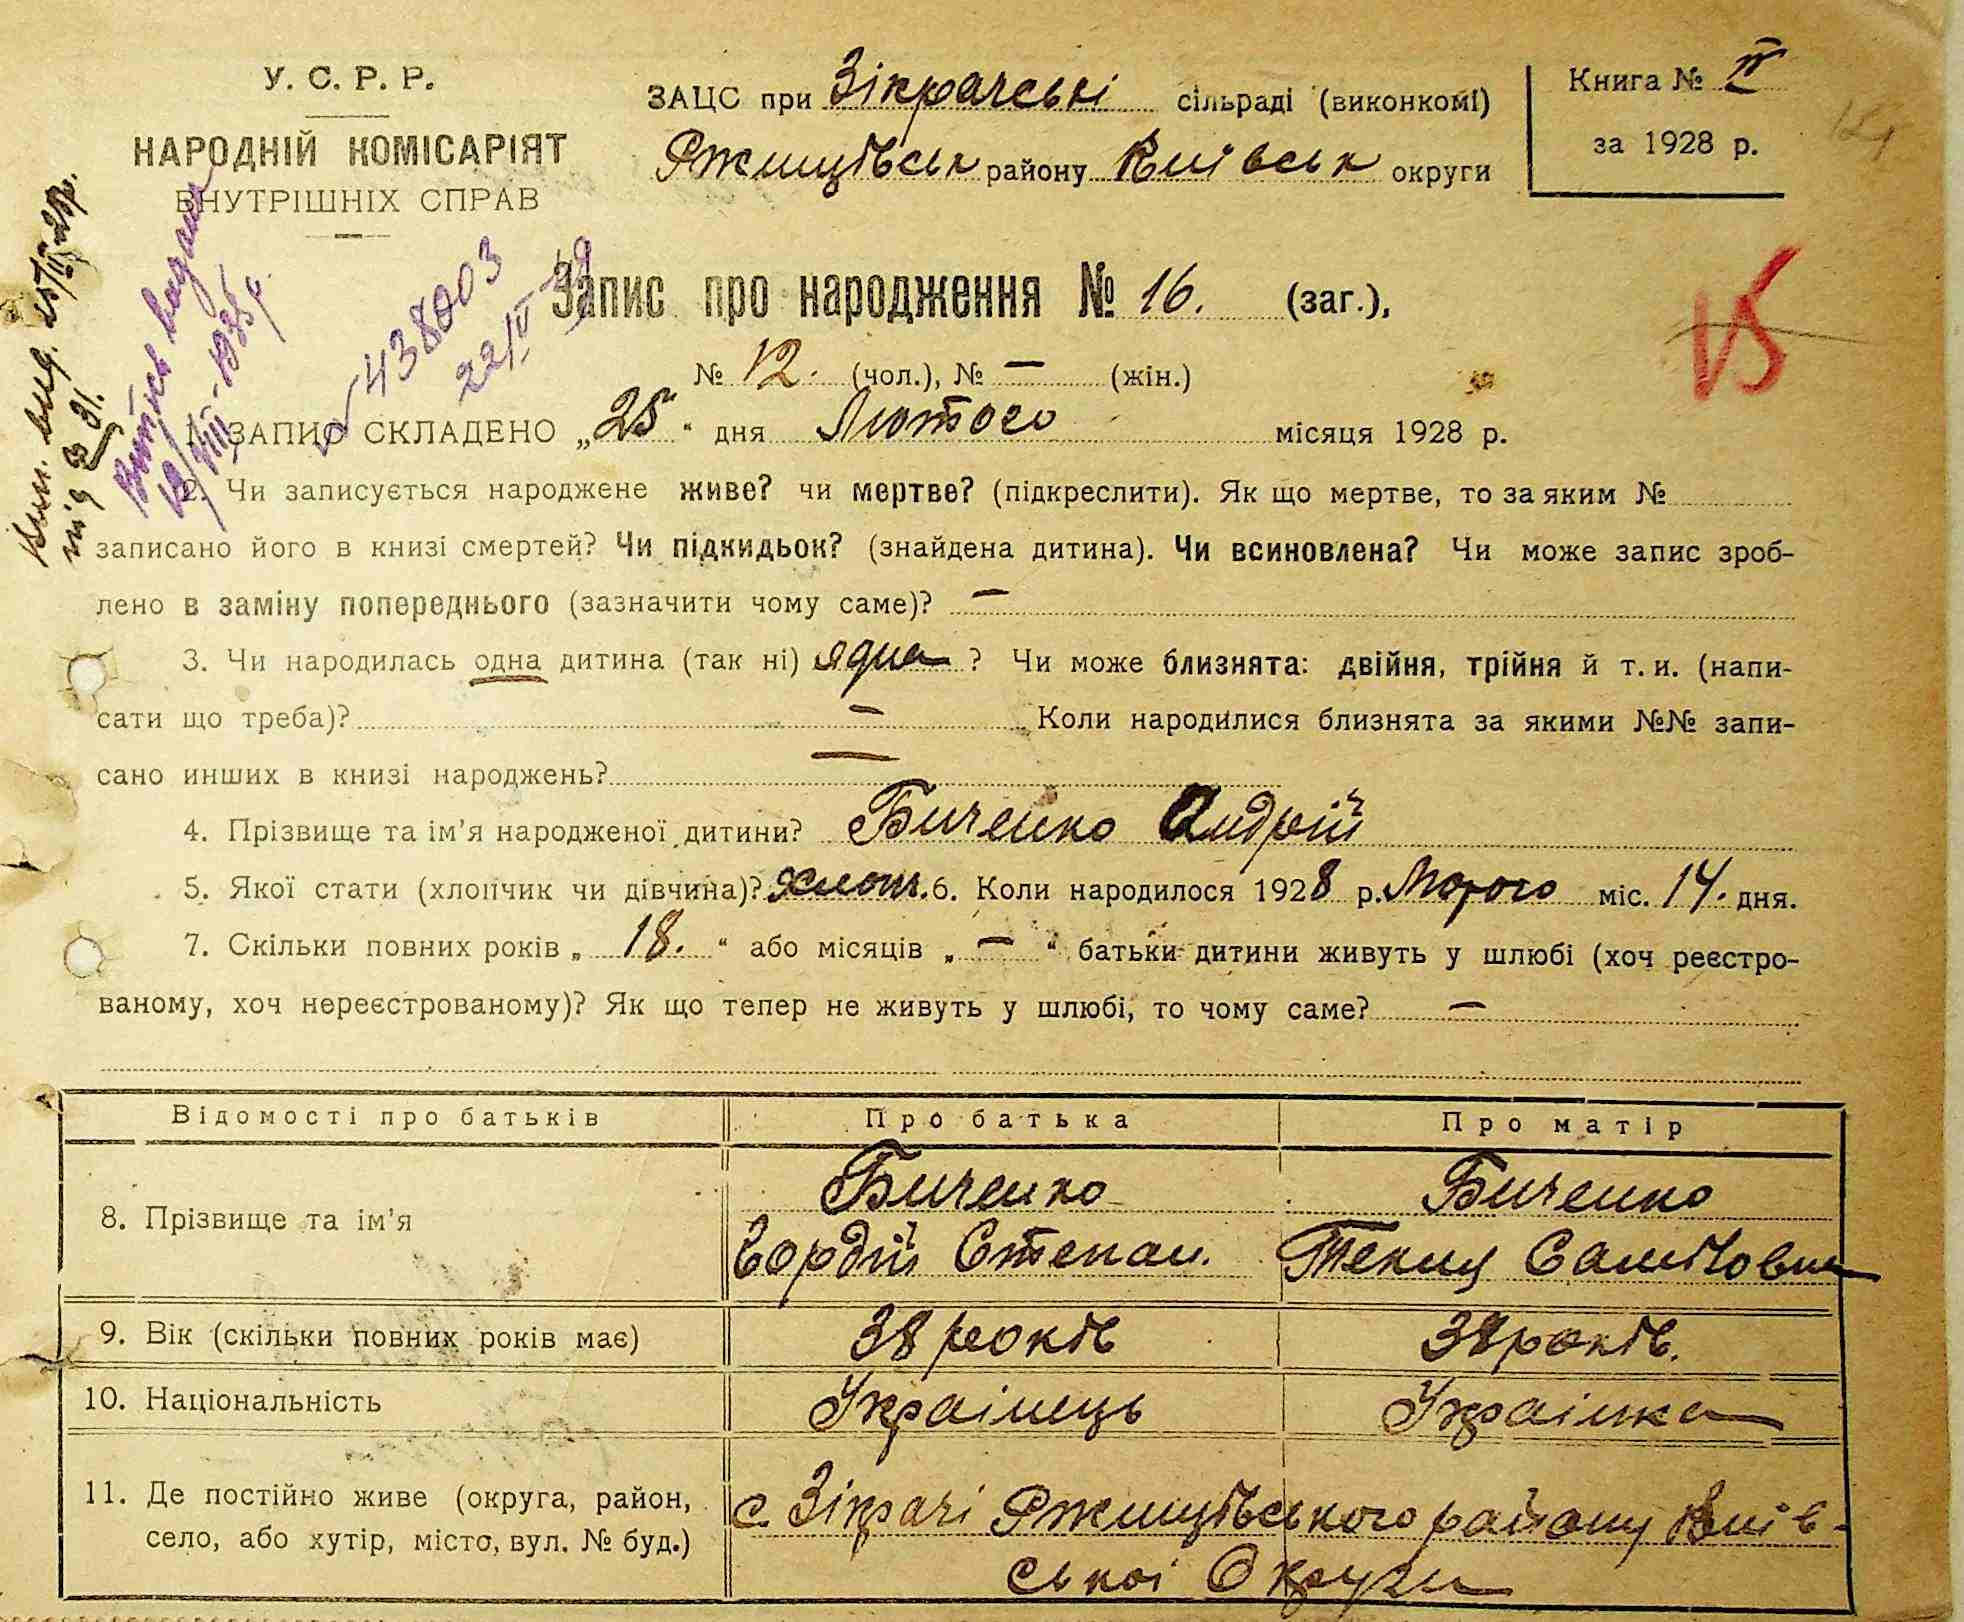 У. С. Р. Р.
НАРОДНІЙ КОМІСАРІЯТ
ВНУТРІШНІХ СПРАВ
ЗАЦС при Зікрачські сільраді (виконкомі)
Ржищівськ району Київськ округи
Книга № IV
за 1928 р.
Витись видани
438003
Запис про народження № 16. (заг.),
15
№ 12. (чол.), № — (жін.)
1. ЗАПИС СКЛАДЕНО „25“ дня Лютого місяця 1928 р.
2. Чи записується народжене живе? чи мертве? (підкреслити). Як що мертве, то за яким №
записано його в книзі смертей? Чи підкидьок? (знайдена дитина). Чи всиновлена? Чи може запис зроб-
лено в заміну попереднього (зазначити чому саме)? —
3. Чи народилась одна дитина (так ні) одна ? Чи може близнята: двійня, трійня й т. и. (напи-
сати що треба)? — Коли народилися близнята за якими №№ запи-
сано инших в книзі народжень? —
4. Прізвище та ім’я народженої дитини? Биченко Андрій
5. Якої стати (хлопчик чи дівчина)? хлопч. 6. Коли народилося 1928 р. Лютого міс. 14. дня.
7. Скільки повних років „ 18. “ або місяців „ — “ батьки дитини живуть у шлюбі (хоч реєстро-
ваному, хоч нереєстрованому)? Як що тепер не живуть у шлюбі, то чому саме? —
Відомості про батьків Про батька Про матір
8. Прізвище та ім’я
Биченко Биченко
Гордій Степан. Текля
9. Вік (скільки повних років має) 38 років 38 років.
10. Національність Українець Українка
11. Де постійно живе (округа, район,
село, або хутір, місто, вул. № буд.)
с. Зікрачі Ржищівського району Київ-
ської Округи